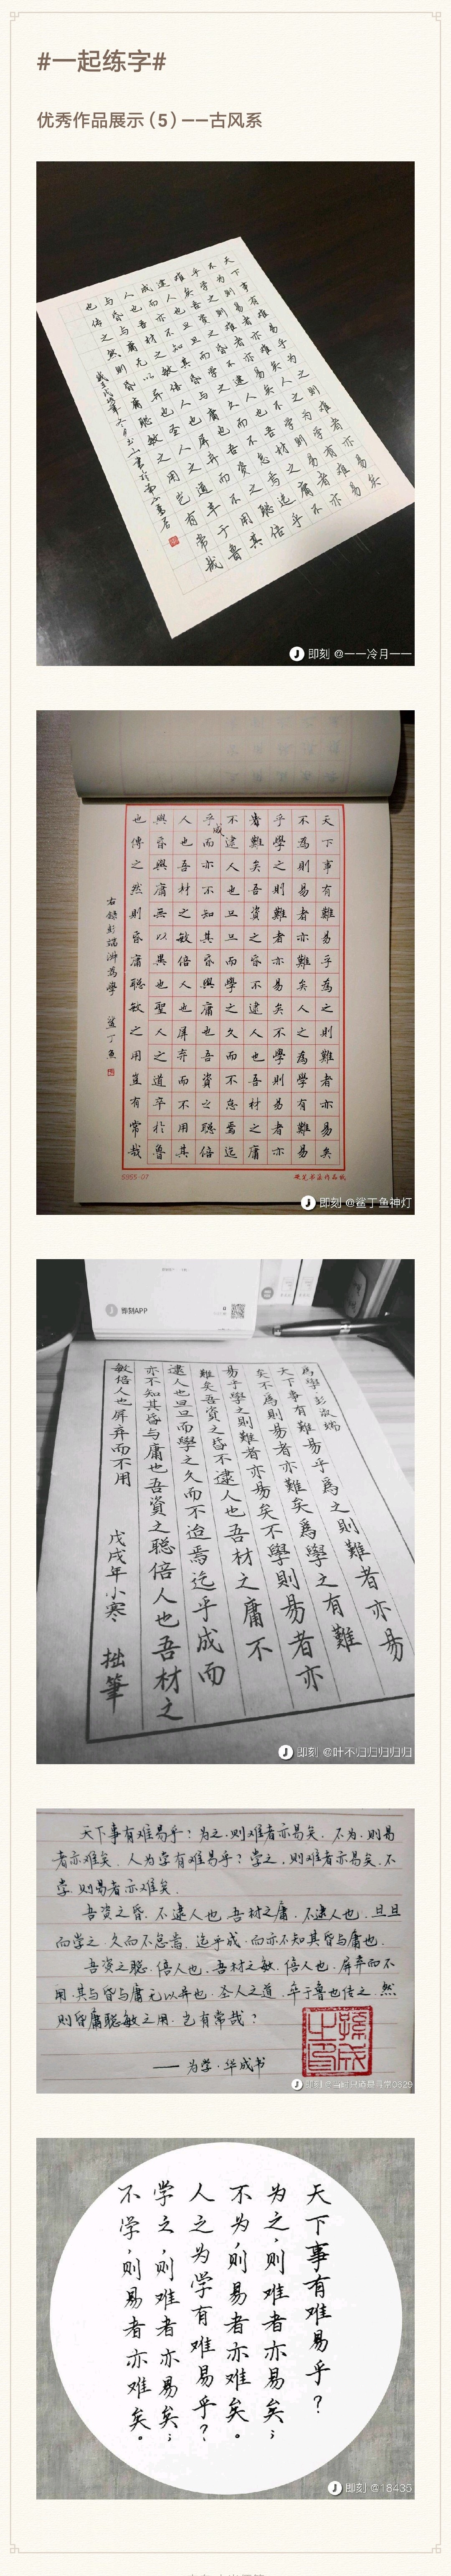 #一起练字#
优秀作品展示（5）——古风系
天下事有难易乎为之则难者亦易矣
不为则易者亦难矣人之为学有难易
乎学之则难者亦易矣不学则易者亦
难矣吾资之昏不逮人也吾材之庸不
逮人也旦旦而学之久而不怠焉迄乎
成而亦不知其昏与庸也吾资之聪倍
人也吾材之敏倍人也屏弃而不用其
与昏与庸无以异也圣人之道卒于鲁
也传之然则昏庸聪敏之用岂有常哉
即刻 @一一冷月一一
天下事有難易乎為之則難者亦易矣
不為則易者亦難矣人之為學有難易
乎學之則難者亦易矣不學則易者亦
難矣吾資之昏不逮人也吾材之庸
不逮人也旦旦而學之久而不怠焉迄
乎成而亦不知其昏與庸也吾資之聰倍
人也吾材之敏倍人也屏弃而不用其
與昏與庸無以異也聖人之道卒於魯
也傳之然則昏庸聰敏之用豈有常哉
右錄彭端淑為學 鲨丁魚
5955-07
硬笔书法作品纸
即刻 @鲨丁鱼神灯
即刻APP
爲學 彭淑端
天下事有難易乎爲之則難者亦易
矣不爲則易者亦難矣爲學之有難
易乎學之則難者亦易矣不學則易者亦
難矣吾資之昏不逮人也吾材之庸不
逮人也旦旦而學之久而不迨焉迄乎成而
亦不知其昏与庸也吾資之聰倍人也吾材之
敏倍人也屏弃而不用 戊戌年小寒 拙筆
即刻 @叶不归归归归归
天下事有难易乎？为之，则难者亦易矣，不为，则易
者亦难矣，人为学有难易乎？学之，则难者亦易矣，不
学，则易者亦难矣。
吾资之昏，不逮人也，吾材之庸，不逮人也，旦旦
而学之，久而不怠焉，迄乎成，而亦不知其昏与庸也，
吾资之聪，倍人也，吾材之敏，倍人也，屏弃而不
用，其与昏与庸无以异也，圣人之道，卒于鲁也传之，然
则昏庸聪敏之用，岂有常哉？
——为学·华成书
天下事有难易乎？
为之，则难者亦易矣；
不为，则易者亦难矣。
人之为学有难易乎？
学之，则难者亦易矣；
不学，则易者亦难矣。
即刻 @18435